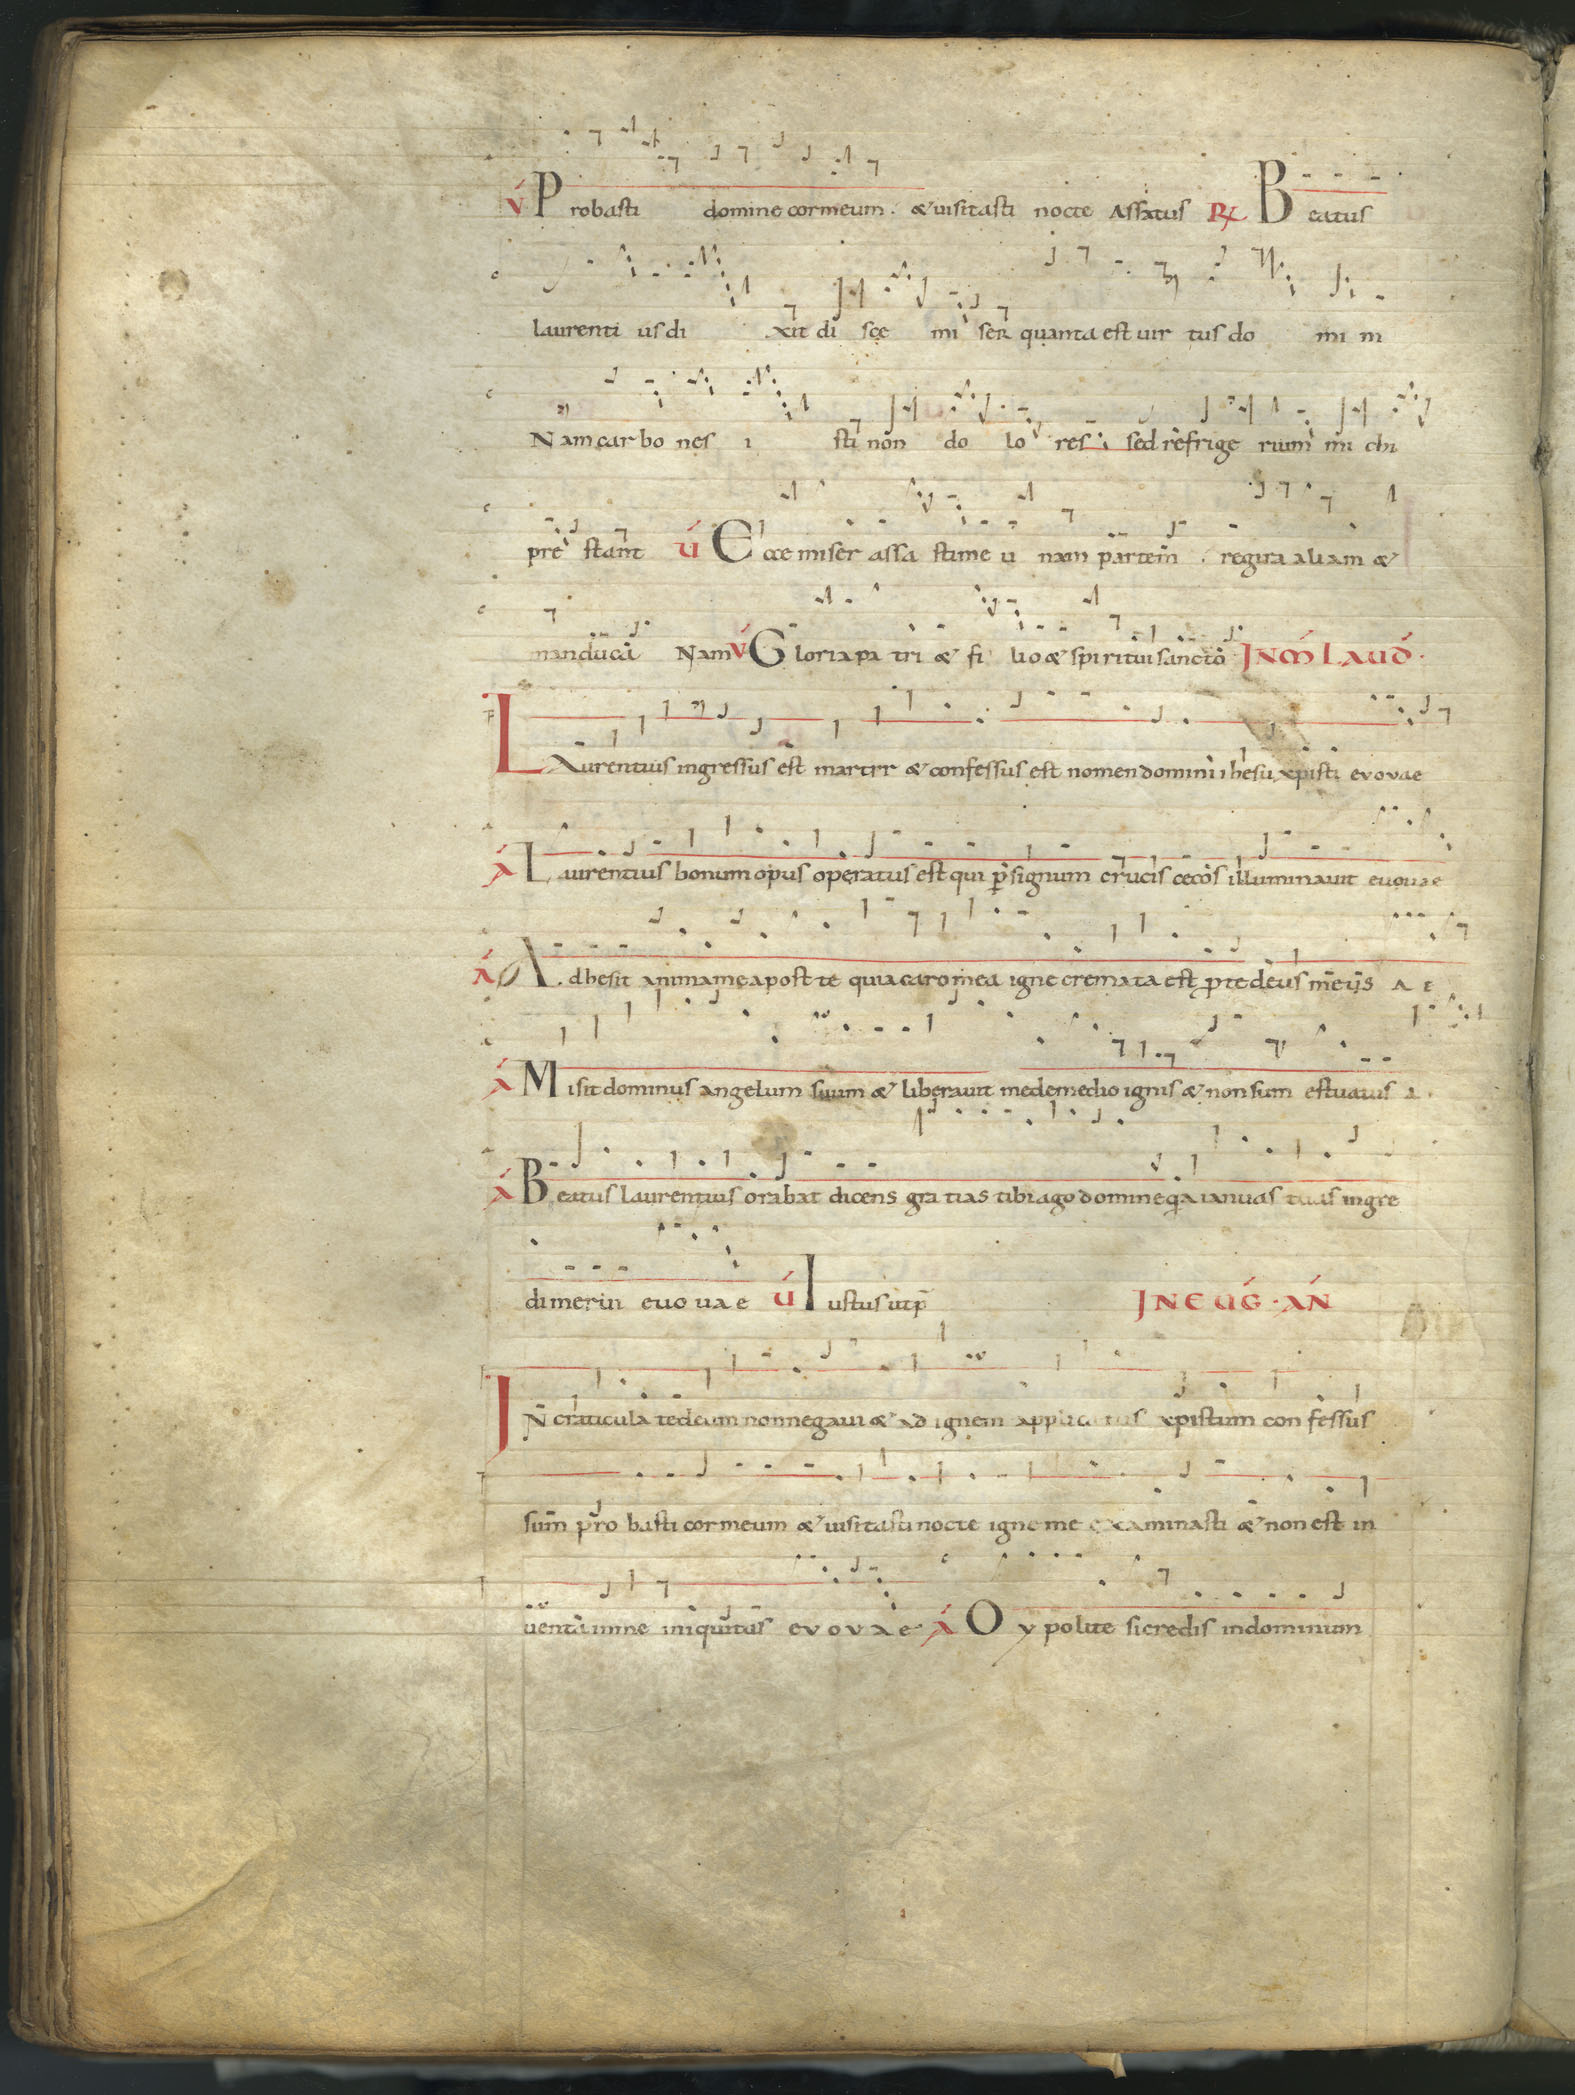 v Probasti domine cor meum . & visitasti nocte Assatus R Beatus
laurenti us di xit di sce mi ser quanta est vir tus do mi ni
Nam carbo nes i sti non do lo res : sed refrige rium mi chi
pre stant v Ecce miser assa sti me u nam partem . regira aliam &
manduca Nam v Gloria pa tri & fi lio & spiritui sancto IN M LAUD .
Laurentius ingressus est martyr & confessus est nomen domini ihesu xpisti evovae
A Laurentius bonum opus operatus est qui p signum crucis cecos illuminavit euouae
A Adhesit anima mea post te quia caro mea igne cremata est p te deus meus A E
A Misit dominus angelum suum & liberavit me de medio ignis & non sum estuatus
A Beatus laurentius orabat dicens gratias tibi ago domine qa ianuas tuas ingre
di merui euouae v Iustus ut p IN EUG . AN
IN craticula te deum non negavi & ad ignem applicatus xpistum confessus
sum pro basti cor meum & visitasti nocte igne me examinasti & non est in
uenta in me iniquitas evovae A O ypolite si credis in dominum